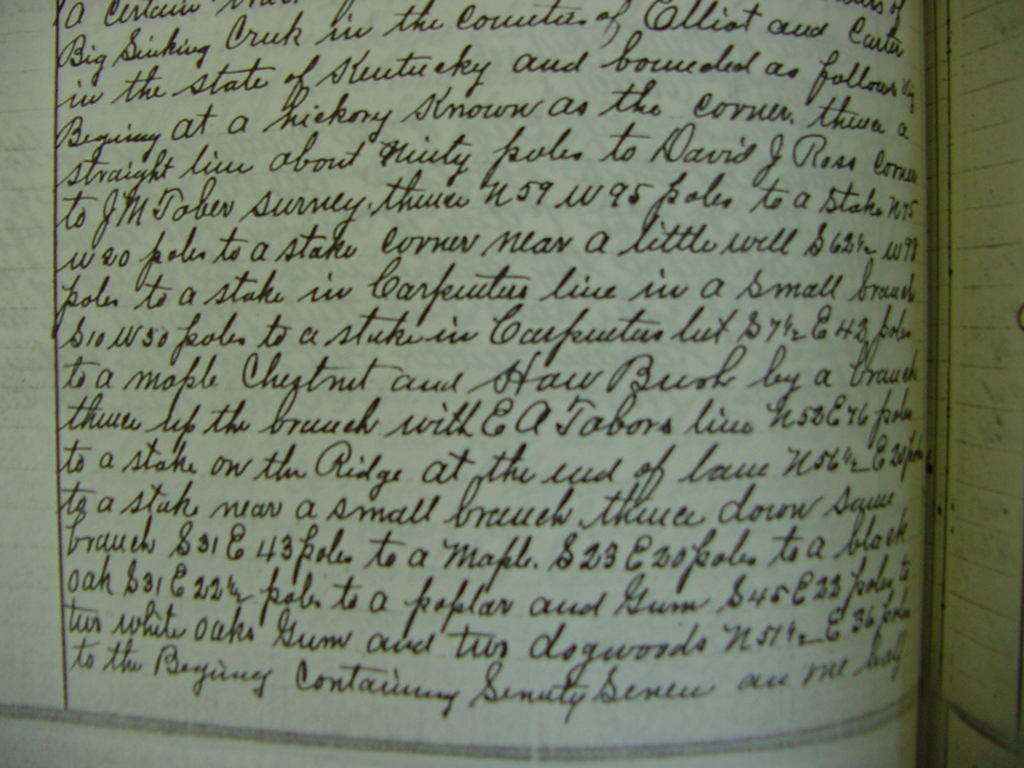 a certain
Big Sinking Creek in the counties of Elliot and Carter
in the state of Kentucky and bounded as follows viz
Begining at a hickory Known as the corner. thence a
straight line about Ninty poles to David J Ross corner
to J M Tober survey, thence N 59 W 95 poles to a stake N 75
W 20 poles to a stake corner near a little well S 62 1/2 W 98
poles to a stake in Carpenters line in a small branch
S 10 W 50 poles to a stake in Carpenters S 7 1/2 E 42 poles
to a maple Chestnut and Haw Bush by a branch
thence up the branch with E A Tabors line N 52 E 76 poles
to a stake on the Ridge at the end of lane N 56 1/2 E 20 poles
to a stake near a small branch, thence down same
branch S 31 E 43 poles to a Maple. S 23 E 20 poles to a black
oak S 31 E 22 1/2 poles to a poplar and Gum S 45 E 22 poles to
two white oaks Gum and two dogwoods N 51 1/2 E 36 poles
to the Begining Containing Seventy Seven an one half